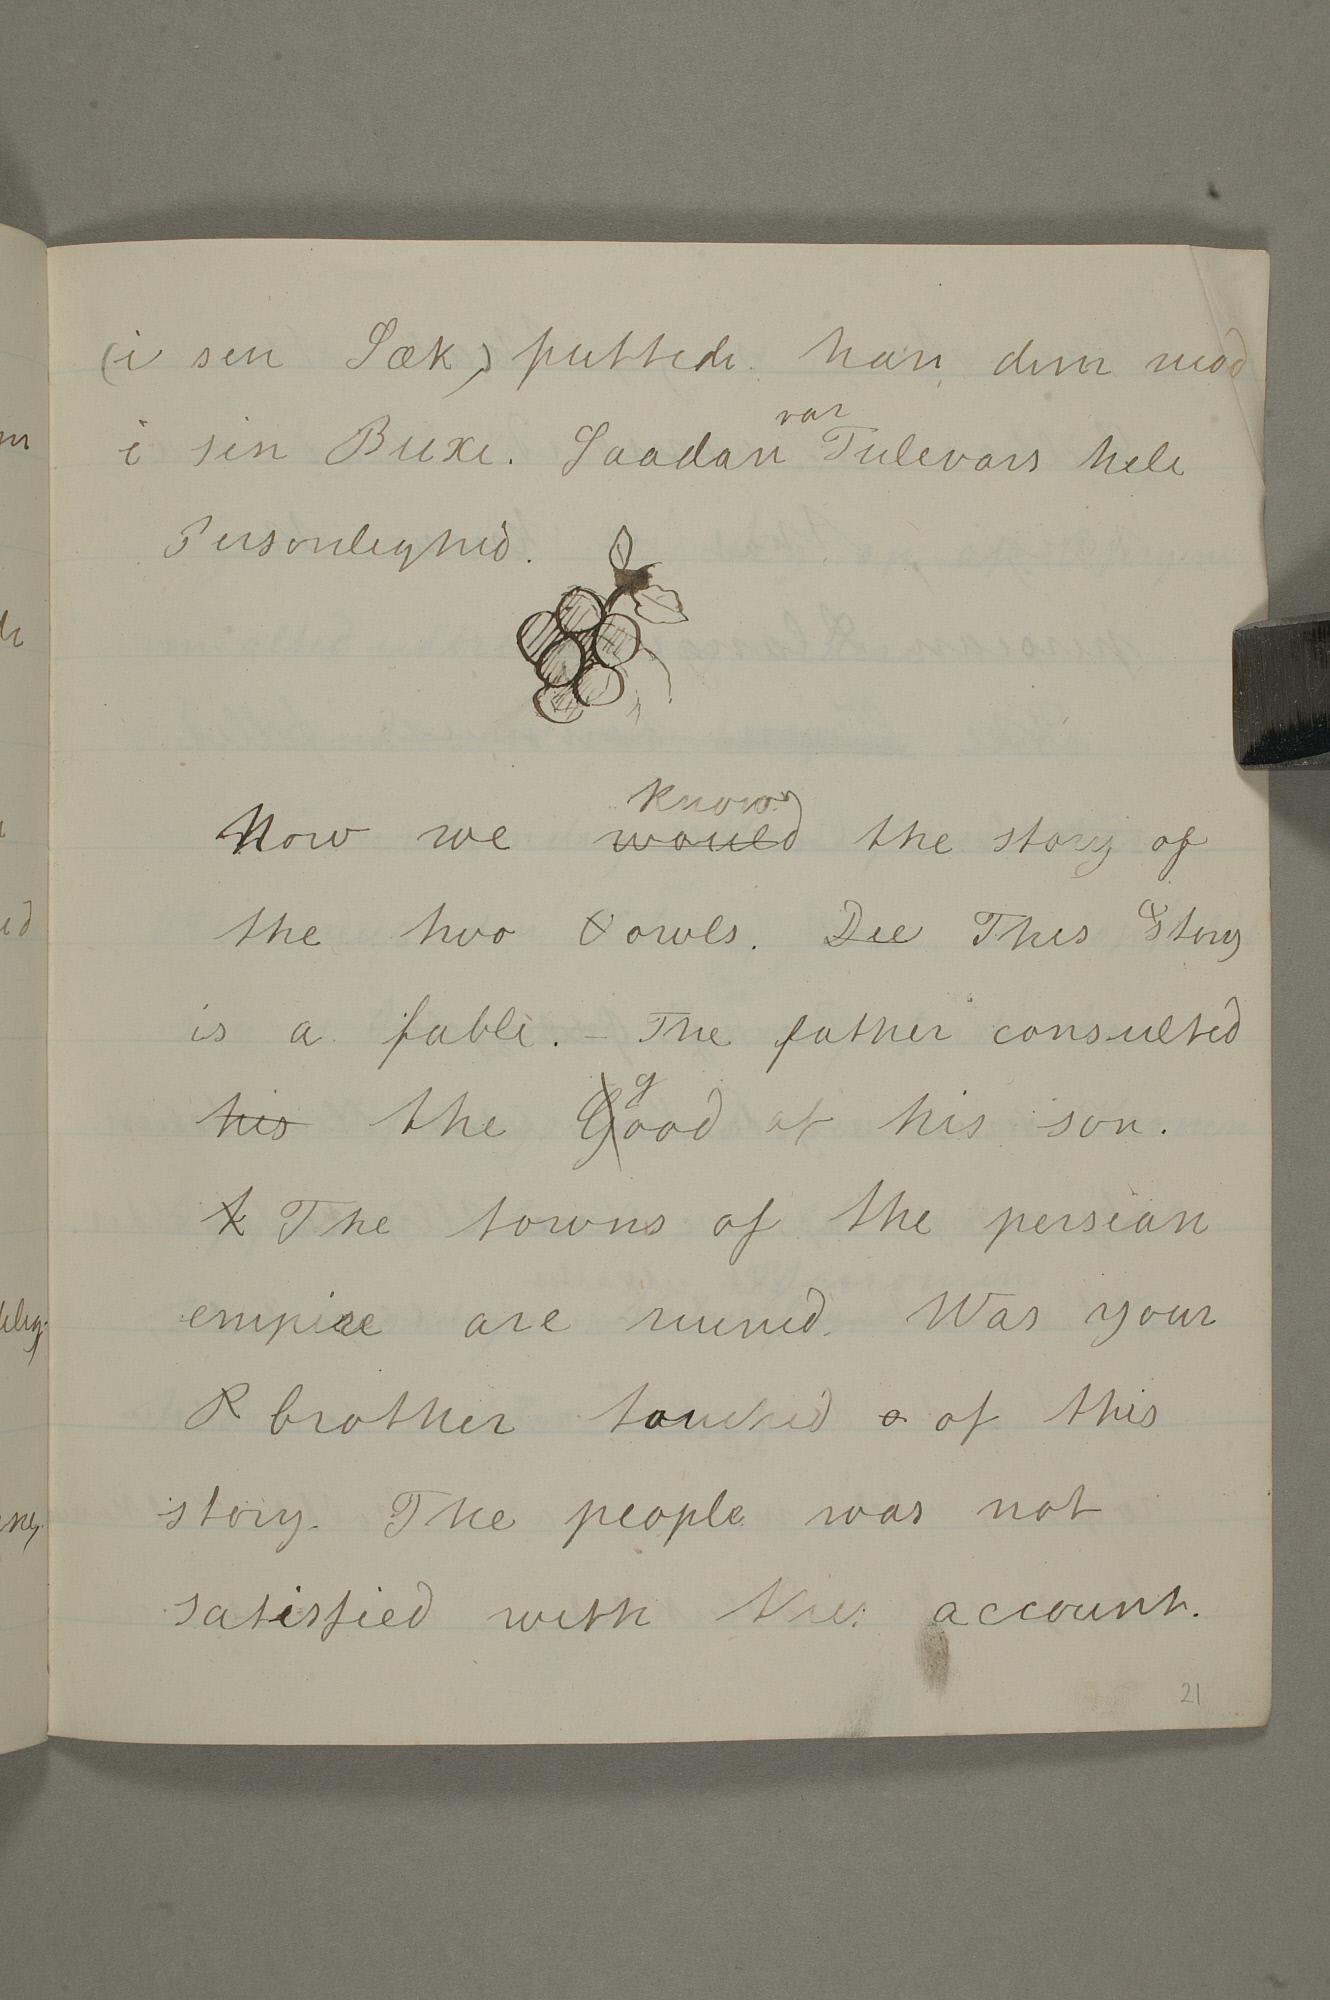 (i sin Sæk) puttede han dem ned
i sin Buxe. Saadan var Tulevars hele
Personlighed.
Now we would know the story of
the two owls. This Story
is a fable. – The father consulted
his the Ggood of his son.
t The towns of the persian
empire are ruined. Was your
B brother touched o of this
story. The people was not
satisfied with this account.
21